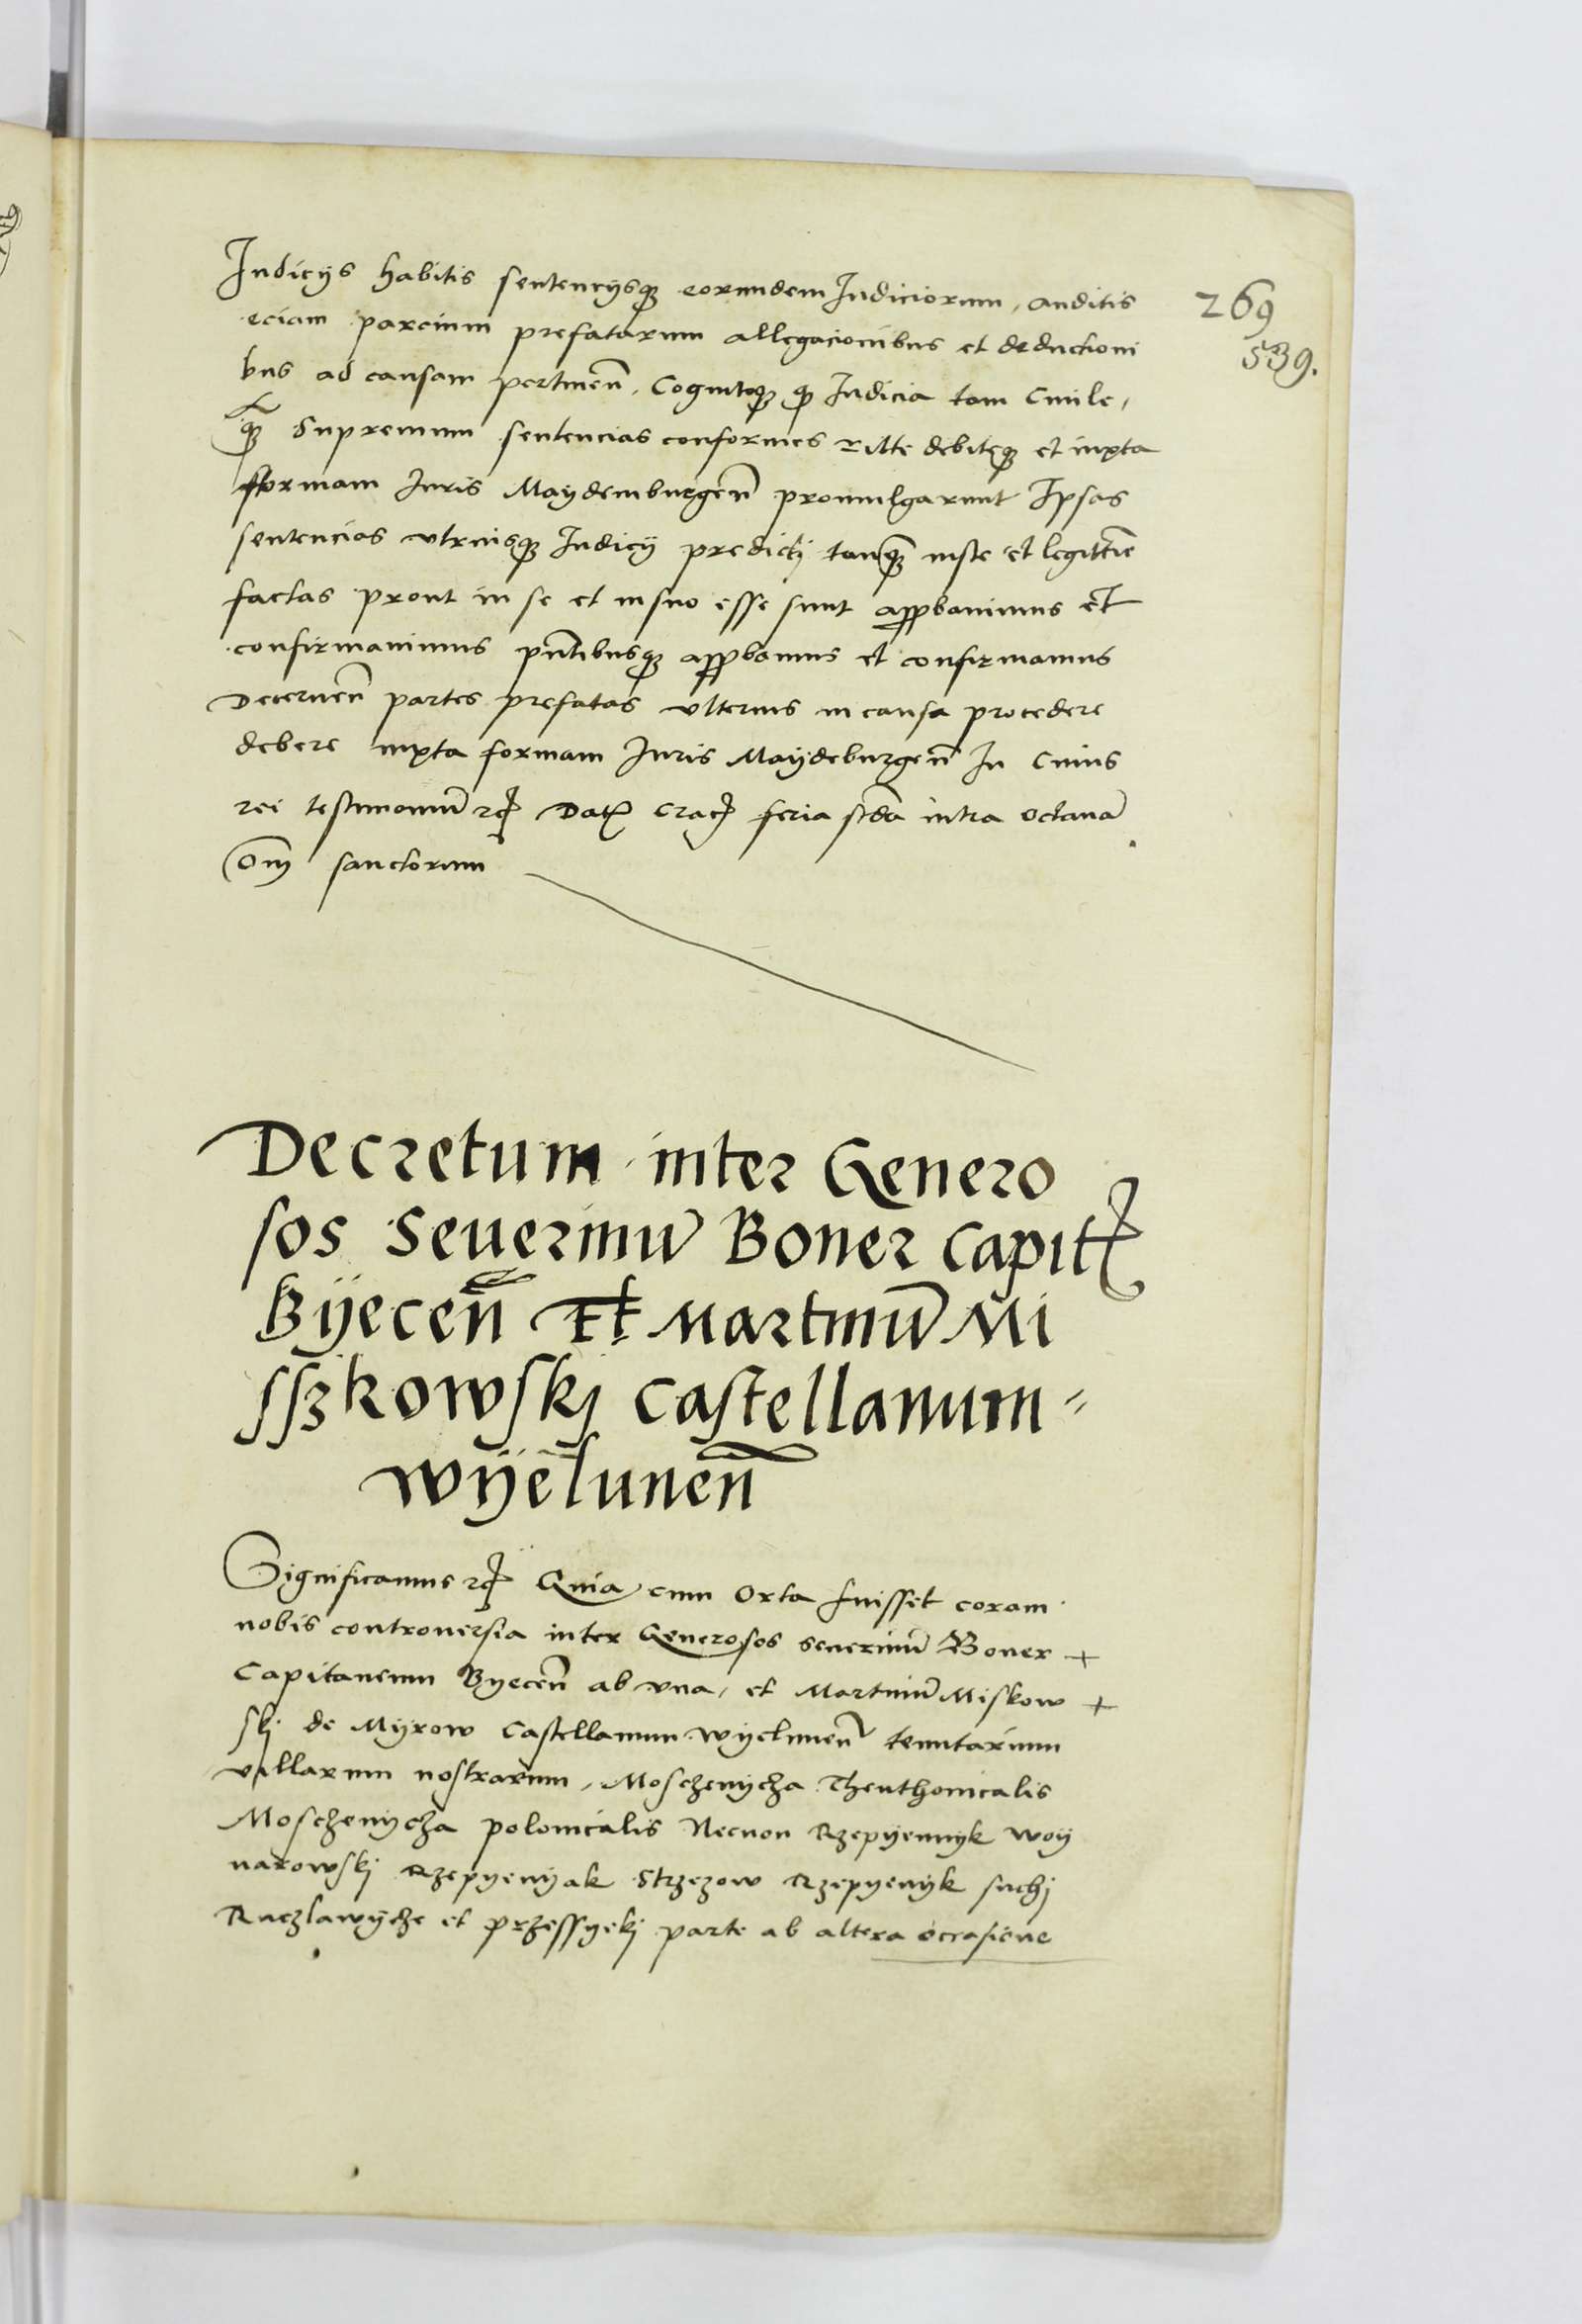 Iudicijs habitis sentencijsqꝫ eorundem Iudiciorum, auditis
eciam parcium prefatarum allegacionibus et deductioni
bus ad causam pertineñ. Cognitoqꝫ qꝫ Iudicia tam Ciuile,
qꝫ Supremum sentencias conformes ritte debiteqꝫ et iuxta
formam Iuris Maydemburgeñ promulgarunt Ipsas
sentencias vtriusqꝫ Iudicij predicti tanqꝫ iuste et legittime
factas prout in se et in suo esse sunt approbauimus et
confirmauimus pñtibusqꝫ approbamus et confirmamus
Decerneñ partes prefatas vlterius in causa procedere
debere iuxta formam Iuris Maÿdeburgeñ In Cuius
rei testimoniũ rcꝭ Datꝭ Cracꝭ feria scđa intra octauã
Om̃ sanctorum
269
539.
Decretum inter Genero
sos Seuerinũ Boner Capitꝭ
Bÿeceñ Et Martinũ Mi
sszkowskj Castellanum
Wÿeluneñ
Significamus rcꝭ Quia cum Orta fuisset coram
nobis controuersia inter Generosos seuerinũ Boner +
Capitaneum Byeceñ ab vna, et Martinũ Miskow +
skj de Mÿrow Castellanum Wyeluneñ tenutarium
villarum nostrarum, Moszczenycza Theuthonicalis
Moszczenycza polonicalis Necnon Rzepyennyk Woÿ
narowskj Rzepyenyak Strzezow Rzepyenyk suchj
Raczlawÿcze et przessyekj parte ab altera occasione